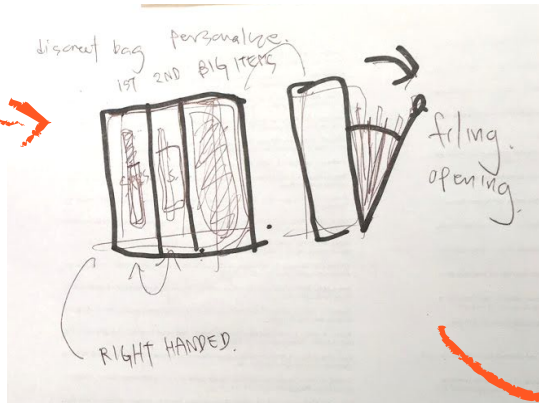 discreet bag personalize.
1ST 2ND BIG ITEMS
filing.
opening.
RIGHT HANDED.